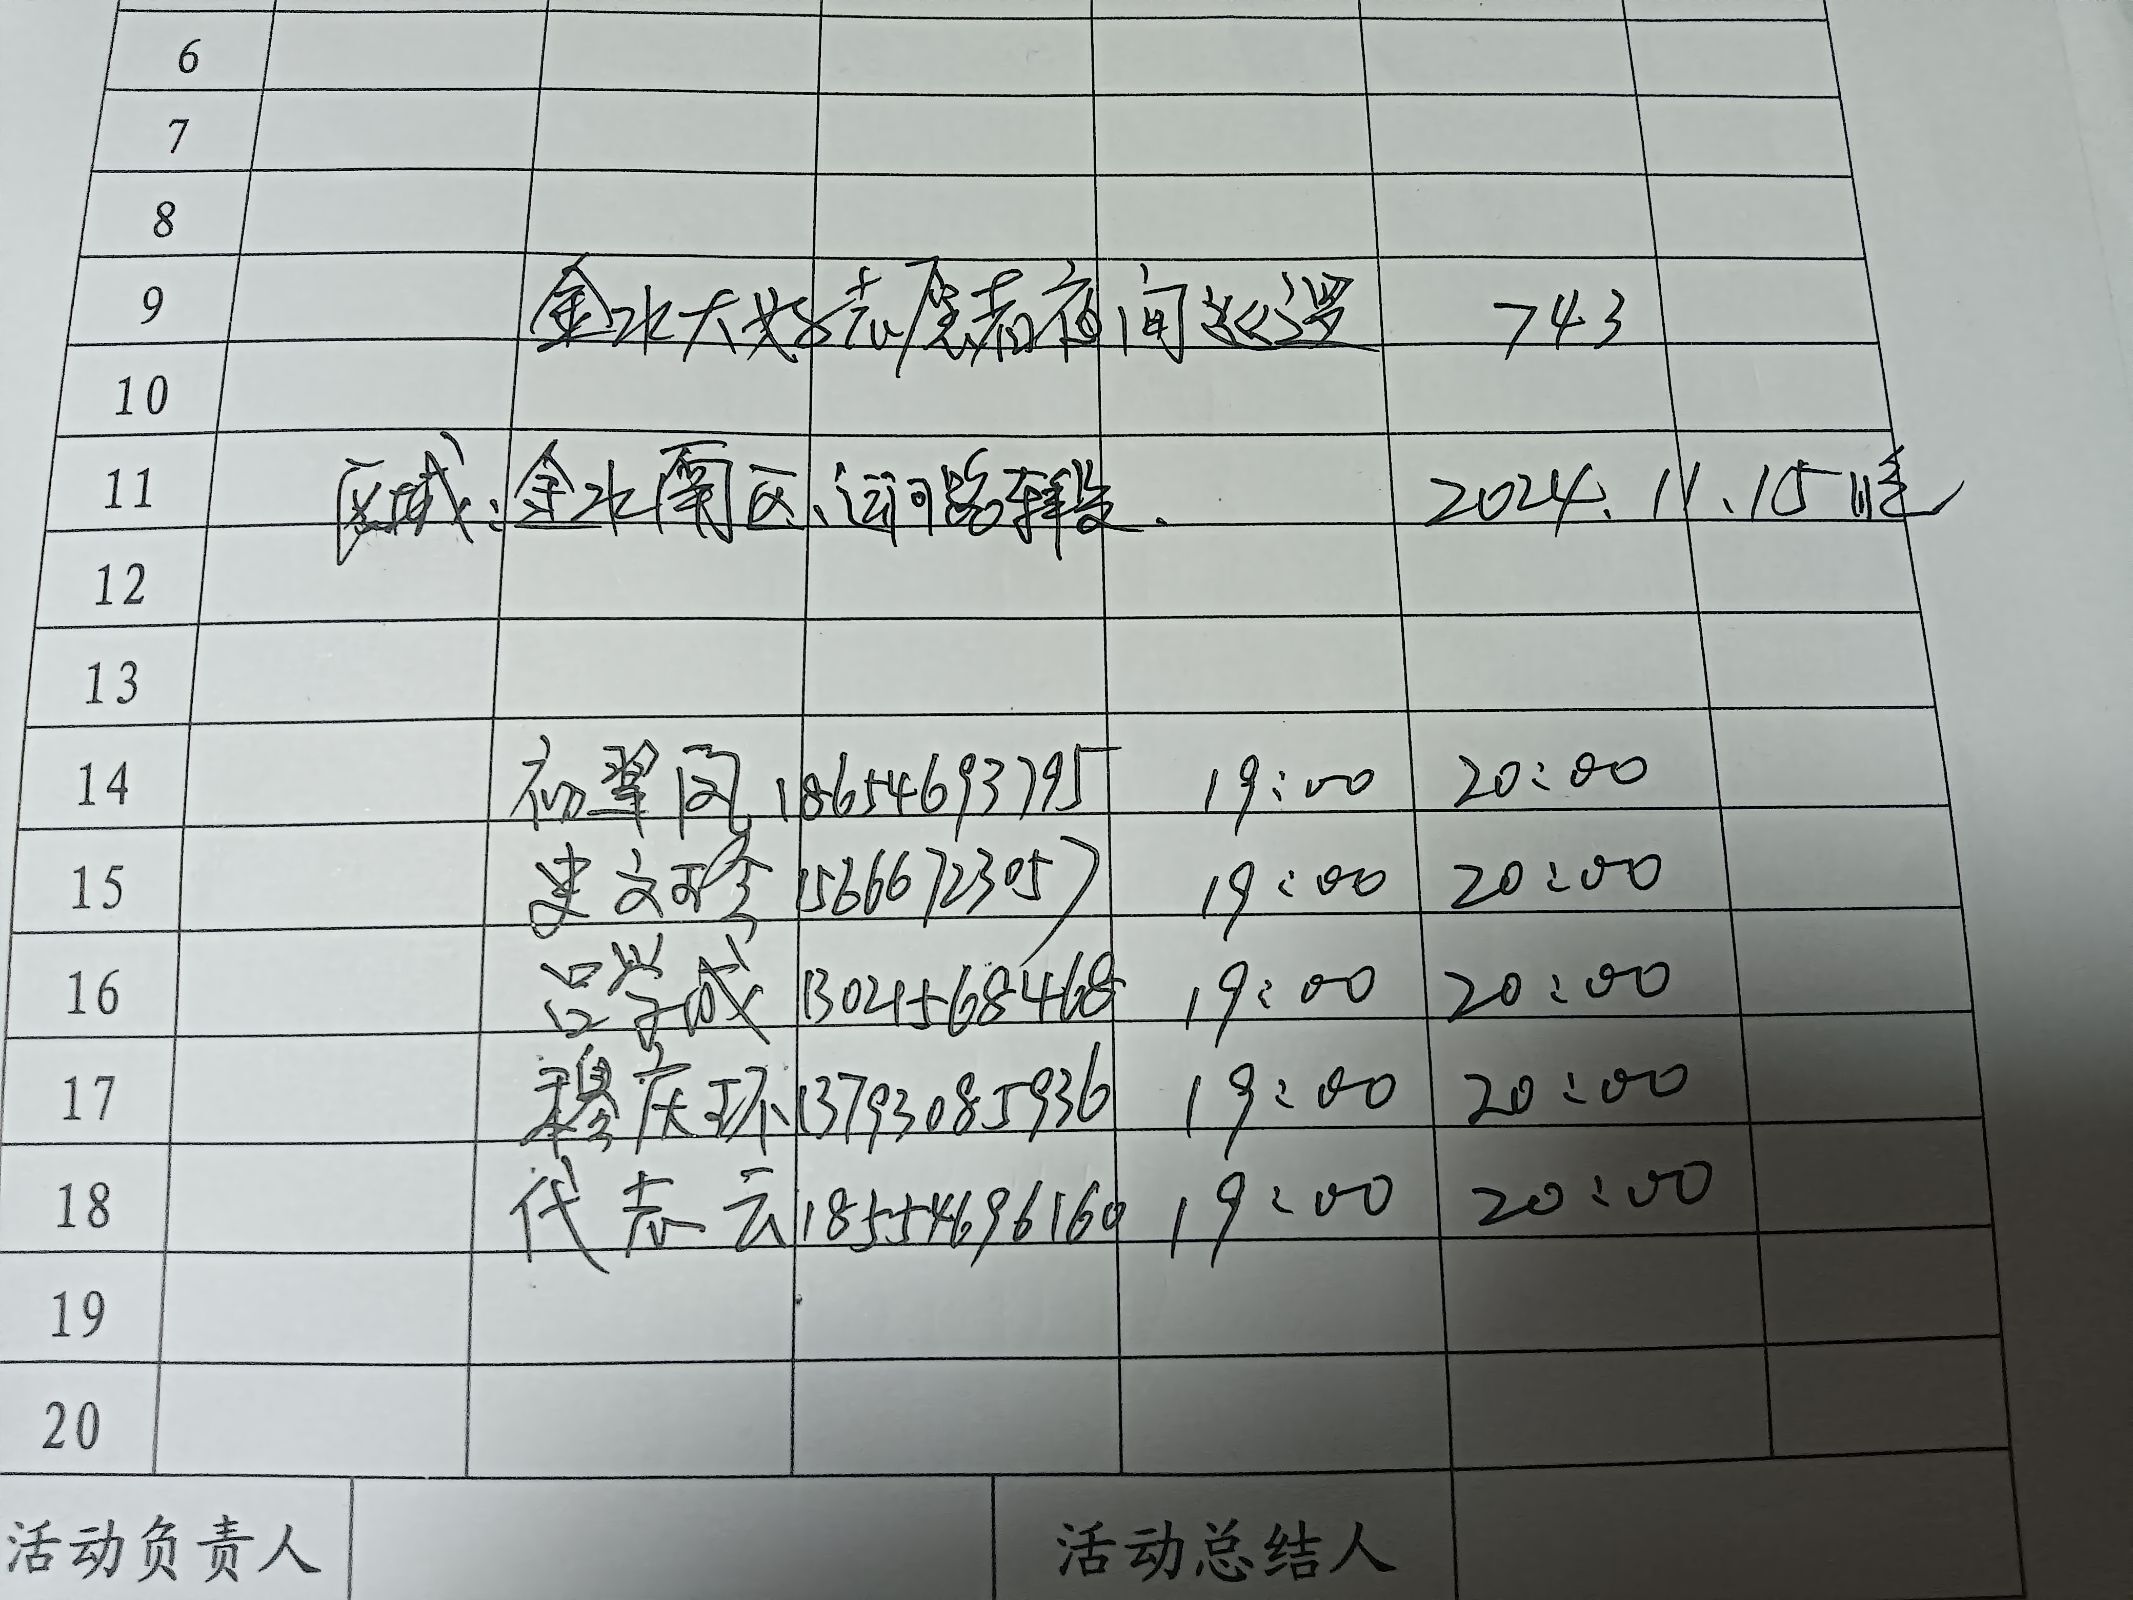 6
7
8
9 金水大姐志愿者夜间巡逻 743
10
11 区域:金水南区、运河路东段. 2024.11.15晚
12
13
14 初翠 18654693795 19:00 20:00
15 史文珍 15666723057 19:00 20:00
16 吕学成 13045668468 19:00 20:00
17 穆庆环 13793085936 19:00 20:00
18 代志云 18554696160 19:00 20:00
19
20
活动负责人 活动总结人